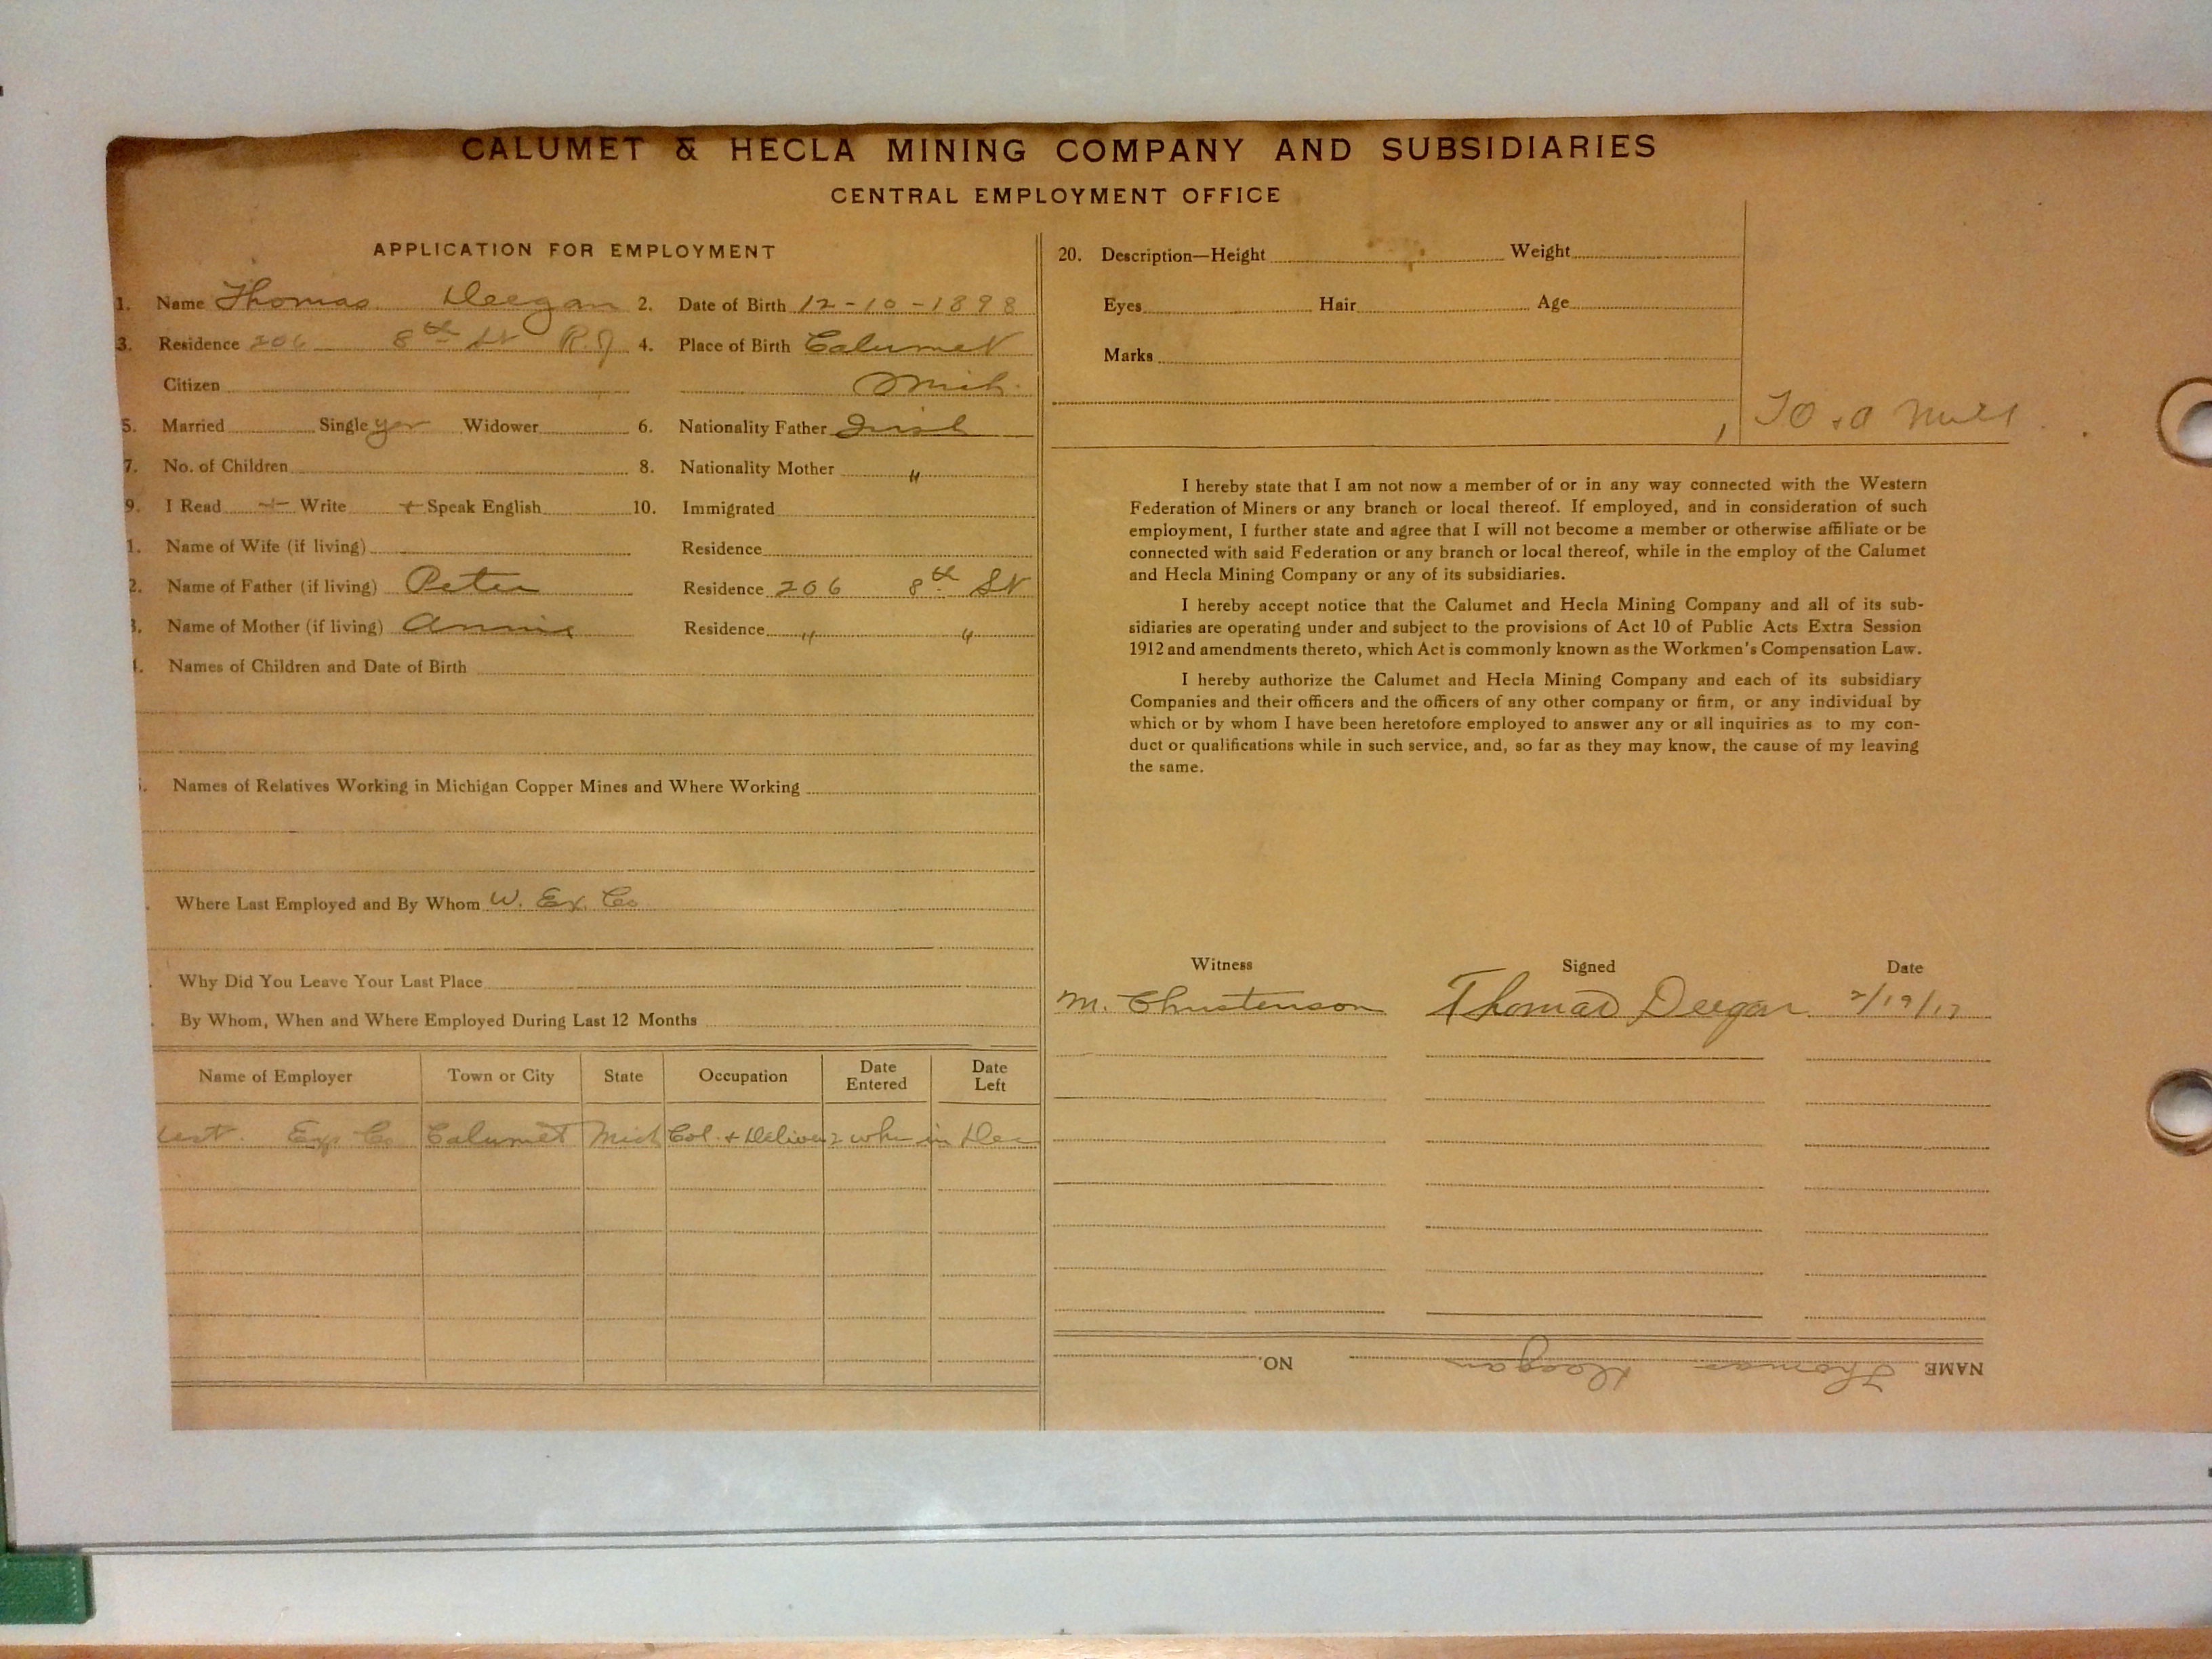 CALUMET & HECLA MINING COMPANY AND SUBSIDIARIES
CENTRAL EMPLOYMENT OFFICE
APPLICATION FOR EMPLOYMENT
1. Name Thomas Deegan 2. Date of Birth 12-10-1898
3. Residence 206 8th St R.J 4. Place of Birth Calumet
Citizen Mich.
5. Married Single yes Widower 6. Nationality Father Irish
7. No. of Children 8. Nationality Mother "
9. I Read + Write + Speak English 10. Immigrated
1. Name of Wife (if living) Residence
2. Name of Father (if living) Peter Residence 206 8th St
3. Name of Mother (if living) Annie Residence " "
4. Names of Children and Date of Birth
Names of Relatives Working in Michigan Copper Mines and Where Working
Where Last Employed and By Whom W. Ex. Co
Why Did You Leave Your Last Place
By Whom, When and Where Employed During Last 12 Months
Name of Employer Town or City State Occupation Date Entered Date Left
West. Exp Co Calumet Mich Col. & Deliver 2 wks in Dec
20. Description—Height Weight
Eyes Hair Age
Marks
Mill
I hereby state that I am not now a member of or in any way connected with the Western
Federation of Miners or any branch or local thereof. If employed, and in consideration of such
employment, I further state and agree that I will not become a member or otherwise affiliate or be
connected with said Federation or any branch or local thereof, while in the employ of the Calumet
and Hecla Mining Company or any of its subsidiaries.
I hereby accept notice that the Calumet and Hecla Mining Company and all of its sub-
sidiaries are operating under and subject to the provisions of Act 10 of Public Acts Extra Session
1912 and amendments thereto, which Act is commonly known as the Workmen's Compensation Law.
I hereby authorize the Calumet and Hecla Mining Company and each of its subsidiary
Companies and their officers and the officers of any other company or firm, or any individual by
which or by whom I have been heretofore employed to answer any or all inquiries as to my con-
duct or qualifications while in such service, and, so far as they may know, the cause of my leaving
the same.
Witness Signed Date
M. Christenson Thomas Deegan 2/19/17
NAME Thomas Deegan NO.